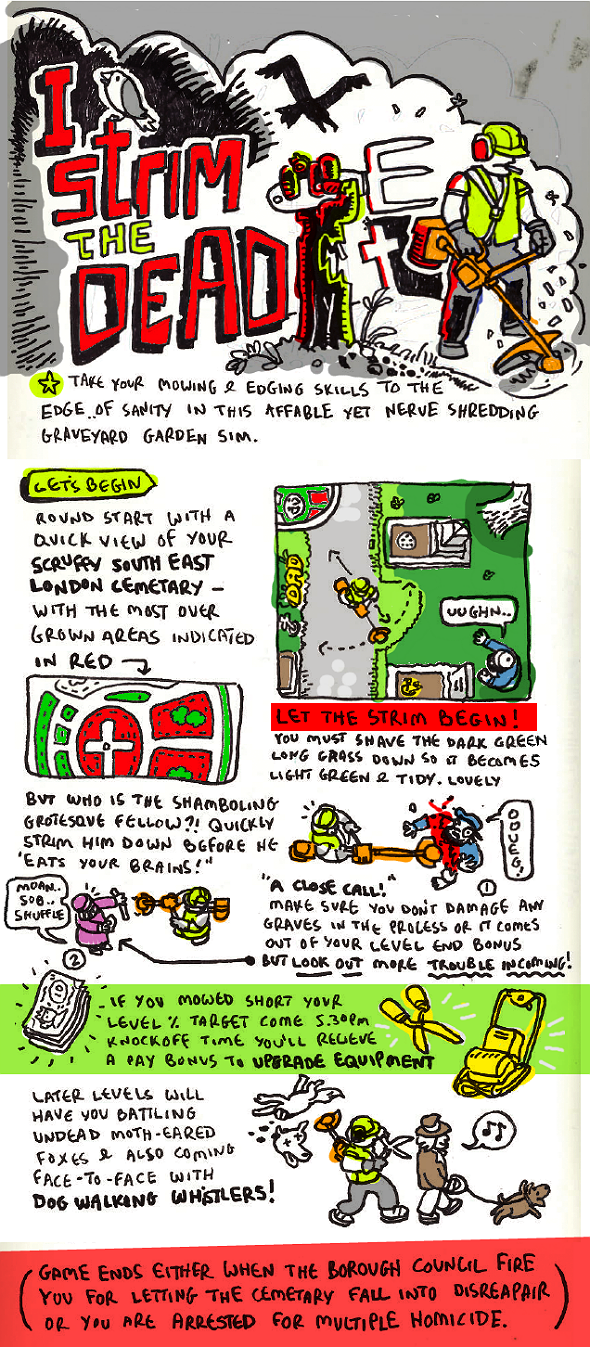 I
STRIM
THE
DEAD
TAKE YOUR MOWING & EDGING SKILLS TO THE
EDGE.. OF SANITY IN THIS AFFABLE YET NERVE SHREDDING
GRAVEYARD GARDEN SIM.
LET'S BEGIN
ROUND START WITH A
QUICK VIEW OF YOUR
SCRUFFY SOUTH EAST
LONDON CEMETARY –
WITH THE MOST OVER
GROWN AREAS INDICATED
IN RED
DAD
UUGHN..
LET THE STRIM BEGIN!
YOU MUST SHAVE THE DARK GREEN
LONG GRASS DOWN SO IT BECOMES
LIGHT GREEN & TIDY. LOVELY
BUT WHO IS THE SHAMBOLING
GROTESQUE FELLOW?! QUICKLY
STRIM HIM DOWN BEFORE HE
"EATS YOUR BRAINS!"
MOAN..
SOB..
SHUFFLE
2
1
"A CLOSE CALL!"
MAKE SURE YOU DON'T DAMAGE ANY
GRAVES IN THE PROCESS OR IT COMES
OUT OF YOUR LEVEL END BONUS
BUT LOOK OUT MORE TROUBLE INCOMING!
IF YOU MOWED SHORT YOUR
LEVEL % TARGET COME 5.30PM
KNOCKOFF TIME YOU'LL RELIEVE
A PAY BONUS TO UPGRADE EQUIPMENT
LATER LEVELS WILL
HAVE YOU BATTLING
UNDEAD MOTH-EARED
FOXES & ALSO COMING
FACE-TO-FACE WITH
DOG WALKING WHISTLERS!
(GAME ENDS EITHER WHEN THE BOROUGH COUNCIL FIRE
YOU FOR LETTING THE CEMETARY FALL INTO DISREAPAIR
OR YOU ARE ARRESTED FOR MULTIPLE HOMICIDE.)